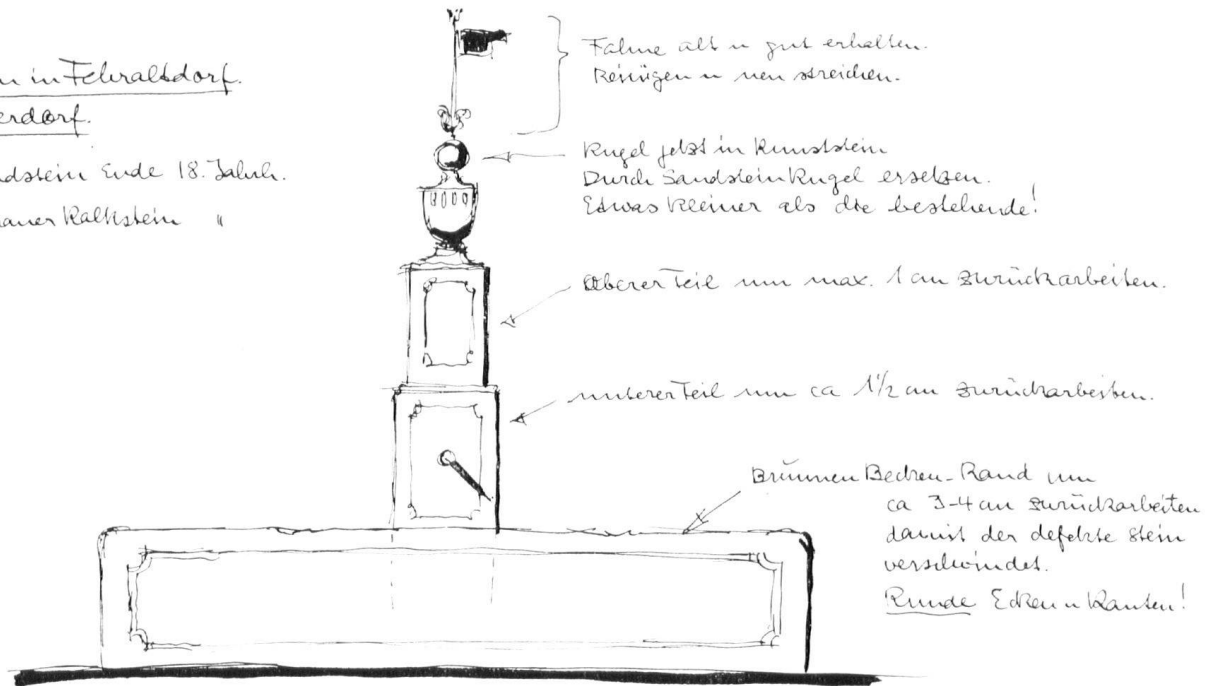 n in Fehraltdorf.
erdorf.
ndstein Ende 18. Jahrh.
auer Kalkstein "
Fahne alt u gut erhalten.
Reinigen u neu streichen.
Kugel jetzt in Kunststein
Durch Sandstein Kugel ersetzen.
Etwas kleiner als die bestehende!
Oberer Teil um max. 1 cm zurückarbeiten.
unterer Teil um ca 1½ cm zurückarbeiten.
Brunnen Becken-Rand um
ca 3-4 cm zurückarbeiten
damit der defekte Stein
verschwindet.
Runde Ecken u Kanten!